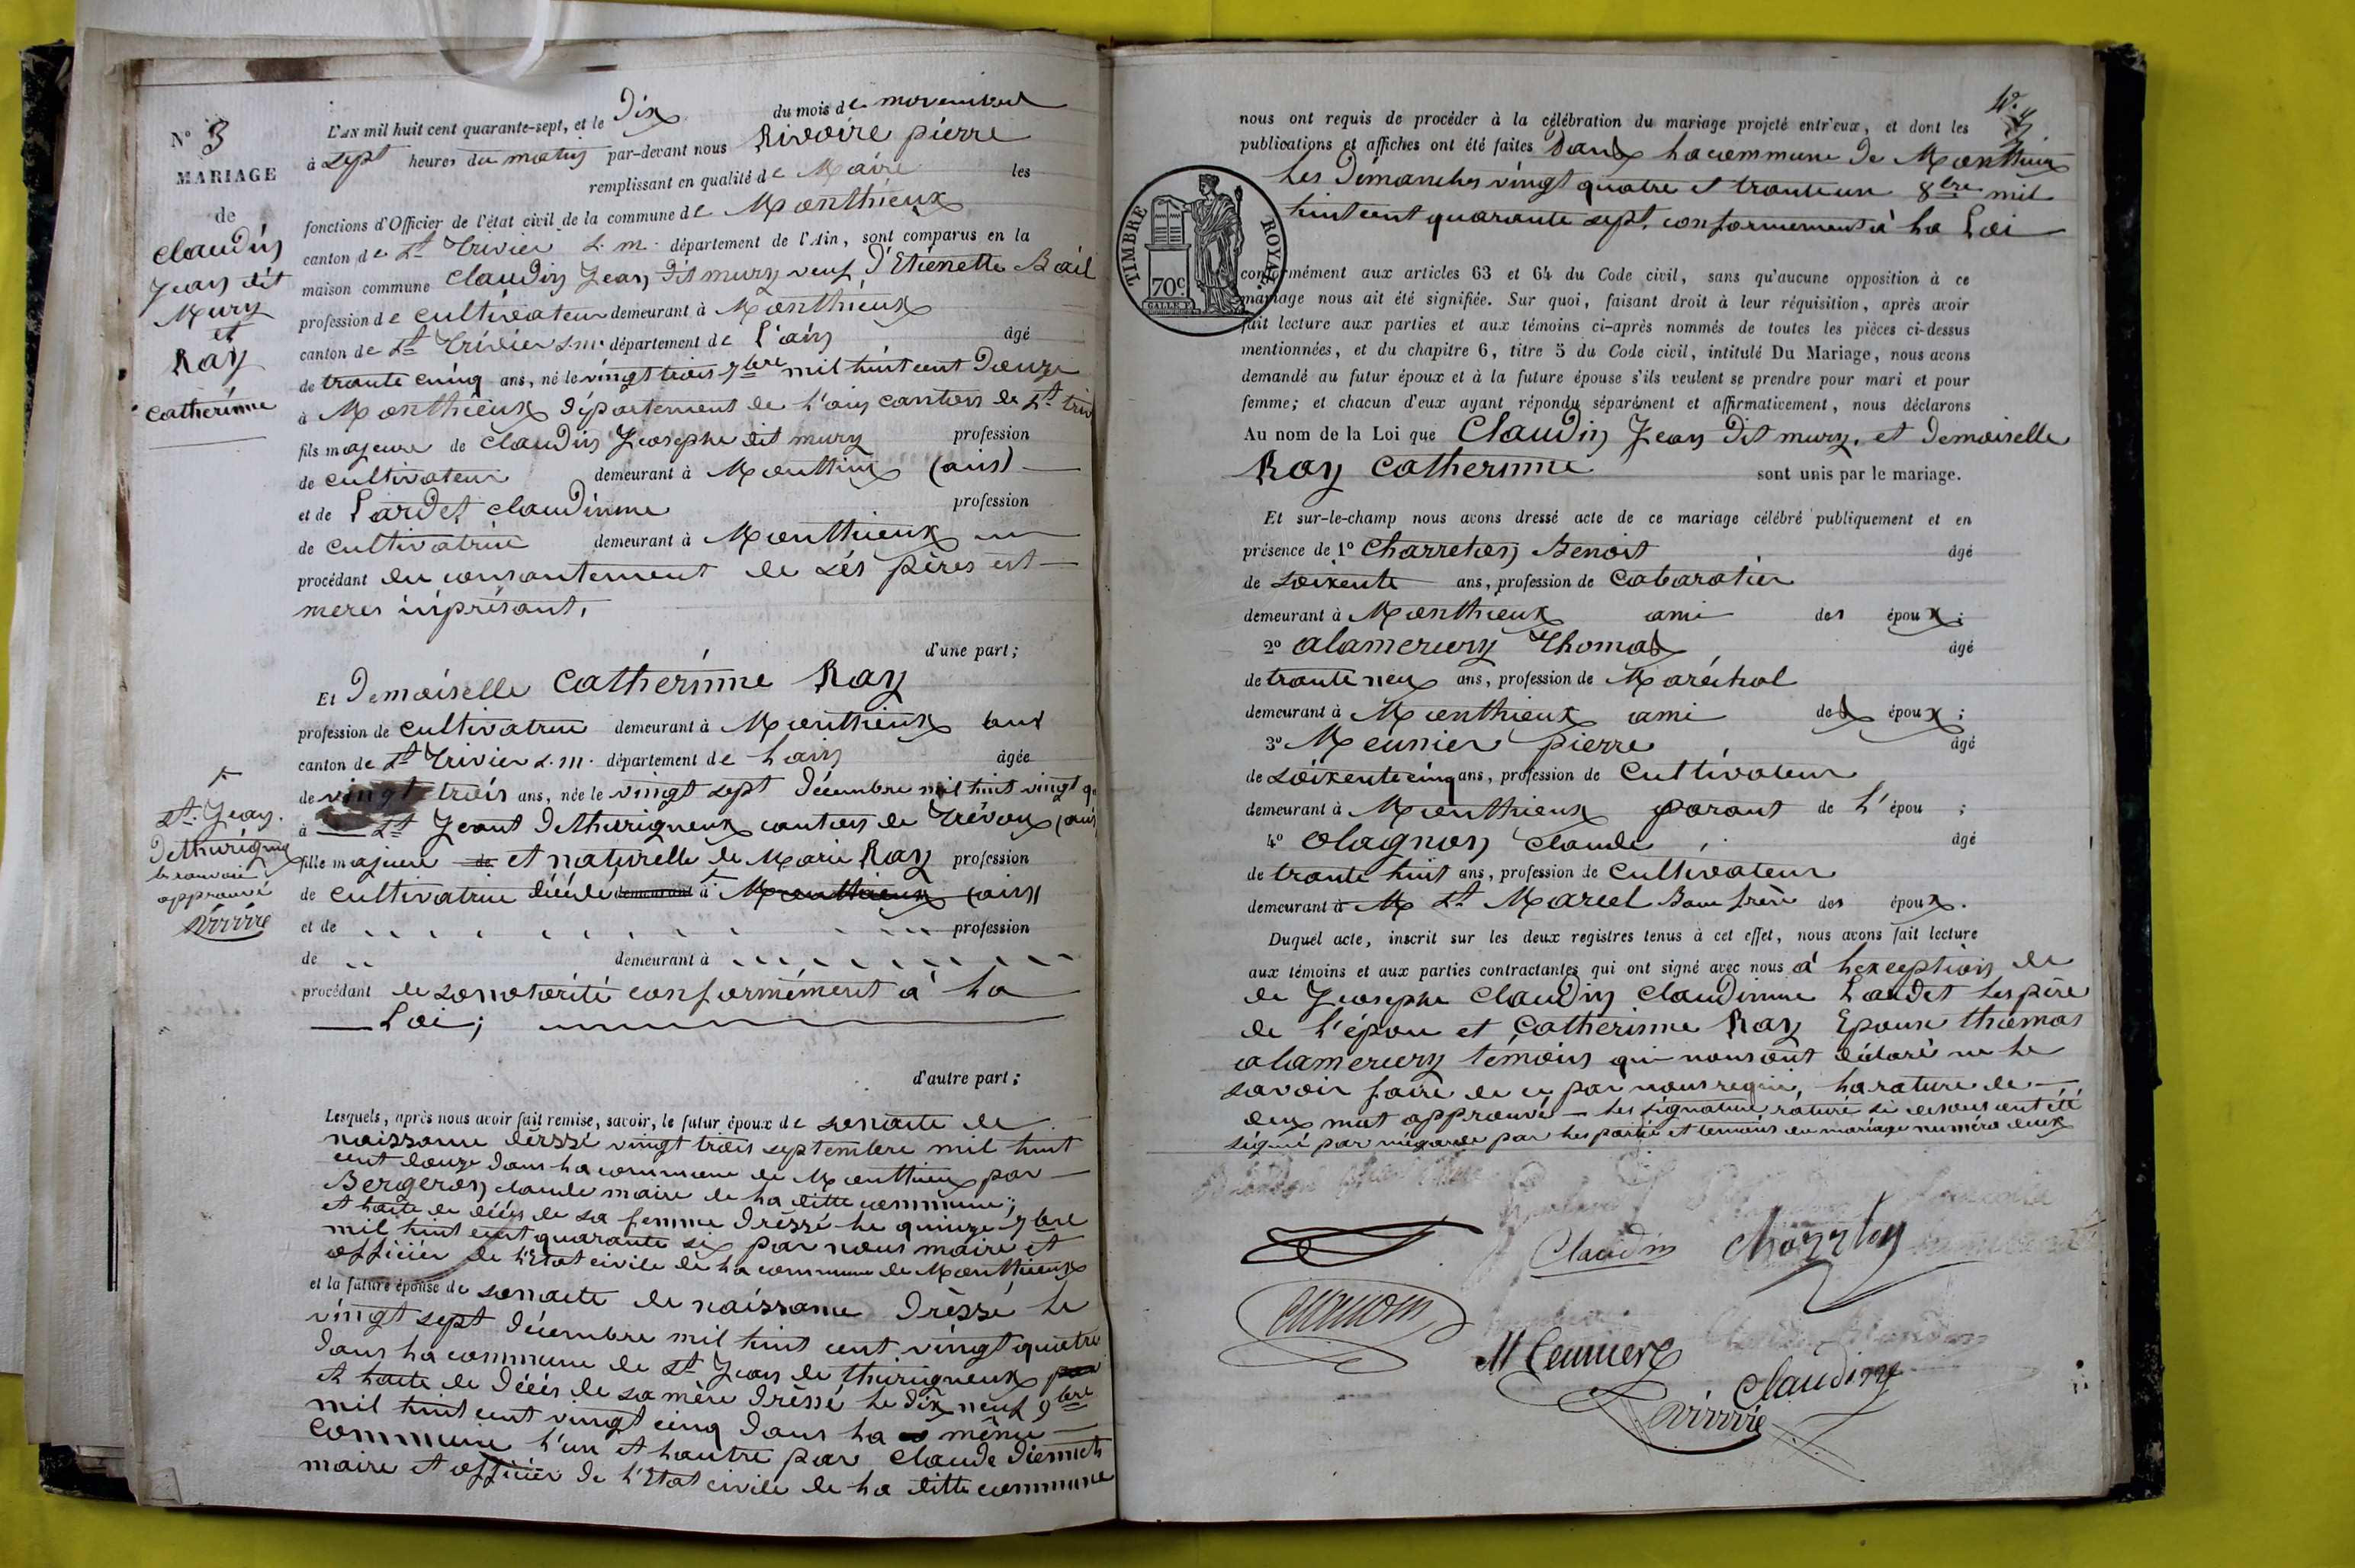 N° 3
MARIAGE
de
Claudin
Jean dit
Mury
et
Ray
Catherinne
L'AN mil huit cent quarante-sept, et le Dix du mois de novembre
à sept heures du matin par-devant nous Rivoire pierre
remplissant en qualité de Maire les
fonctions d'Officier de l'état civil de la commune de Monthieux
canton de St Trivier S. m. département de l'Ain, sont comparus en la
maison commune Claudin Jean Dit mury veuf d'Etienette Bail
profession de cultivateur demeurant à Monthieux
canton de St Trivier S. m. département de L'ain âgé
de trante cinq ans, né le vingt trois 7bre mil huit cent Douze
à Monthieux département de L'ain canton de St triv
fils majeure de Claudin Josephe dit mury profession
de cultivateur demeurant à Monthieux (ain)
et de Lardet claudinne profession
de cultivatrice demeurant à Monthieux
procédant du consantement de sés pères est
meres inprésant,
d'une part;
Et Demoiselle Catherinne Ray
profession de cultivatrice demeurant à Monthieux
canton de St Trivier S. m. département de Lain âgée
de vingt trois ans, née le vingt sept Décembre mil huit vingt q
à St Jeant Dethurigneux canton de Trévoux (ain
fille majeure de et naturelle de Marie Ray profession
de cultivatrice décédé demeurant à Monthieux (ain)
et de profession
de demeurant à
procédant de sonotorité conformément à La
Loi;
St. Jean.
Dethurigneux
approuvé
Rivoire
d'autre part;
Lesquels, après nous avoir fait remise, savoir, le futur époux de sonacte de
naissance dérssé vingt trois septembre mil huit
cent douze dans La commune de Monthieux par
Bergeron claude maire de La ditte commune;
et Lacte de décés de sa femme Dréssé Le quinze 7bre
mil huit cent quarante six par nous maire et
officier de L'Etat civile de La commune de Monthieux
et la future épouse de sonacte de naissance Dréssé Le
vingt sept Décembre mil huit cent vingt quatre
Dans La commune de St Jean de thurigneux par
et Lacte de Décés de sa mère Dréssé Le Dix neuf 9bre
mil huit cent vingt cinq Dans La même
commune L'un et Lautre par Claude
maire et officier de L'Etat civile de La ditte commune
nous ont requis de procéder à la célébration du mariage projeté entr'eux, et dont les
publications et affiches ont été faites Dans La commune De Monthieux
Les Dimanches vingt quatre et tranteun 8bre mil
huit cent quarante sept, conformement à La Loi
TIMBRE ROYAL.
70c
conformément aux articles 63 et 64 du Code civil, sans qu'aucune opposition à ce
mariage nous ait été signifiée. Sur quoi, faisant droit à leur réquisition, après avoir
fait lecture aux parties et aux témoins ci-après nommés de toutes les pièces ci-dessus
mentionnées, et du chapitre 6, titre 5 du Code civil, intitulé Du Mariage, nous avons
demandé au futur époux et à la future épouse s'ils veulent se prendre pour mari et pour
femme; et chacun d'eux ayant répondu séparément et affirmativement, nous déclarons
Au nom de la Loi que Claudin Jean Dit mury, et Demoiselle
Ray Catherinne sont unis par le mariage.
Et sur-le-champ nous avons dressé acte de ce mariage célébré publiquement et en
présence de 1° Charreton Benoit âgé
de soixente ans, profession de Cabaratier
demeurant à Monthieux ami des époux;
2° alamercery Thomas âgé
de trante neux ans, profession de Maréchal
demeurant à Monthieux ami des époux;
3° Meunier pierre âgé
de soixente cinq ans, profession de Cultivateur
demeurant à Monthieux parant de L'épou;
4° Olagnon Claude, âgé
de trante huit ans, profession de Cultivateur
demeurant à M St Marcel Beau frère des époux.
Duquel acte, inscrit sur les deux registres tenus à cet effet, nous avons fait lecture
aux témoins et aux parties contractantes qui ont signé avec nous à Lexception de
de Joosephe Claudin Claudinne Lardet Les père
de L'épou et Catherinne Ray Epouse thomas
alamercery témoins qui nous ont déclaré ne Le
savoir faire de ce par nous requis, La rature de
deux mot approuvé Les signature raturé si desous ont été
signé par mégarde par Les partie et temoins du mariage numéro deux
Claudin
Meunier
Claudin
Rivoire